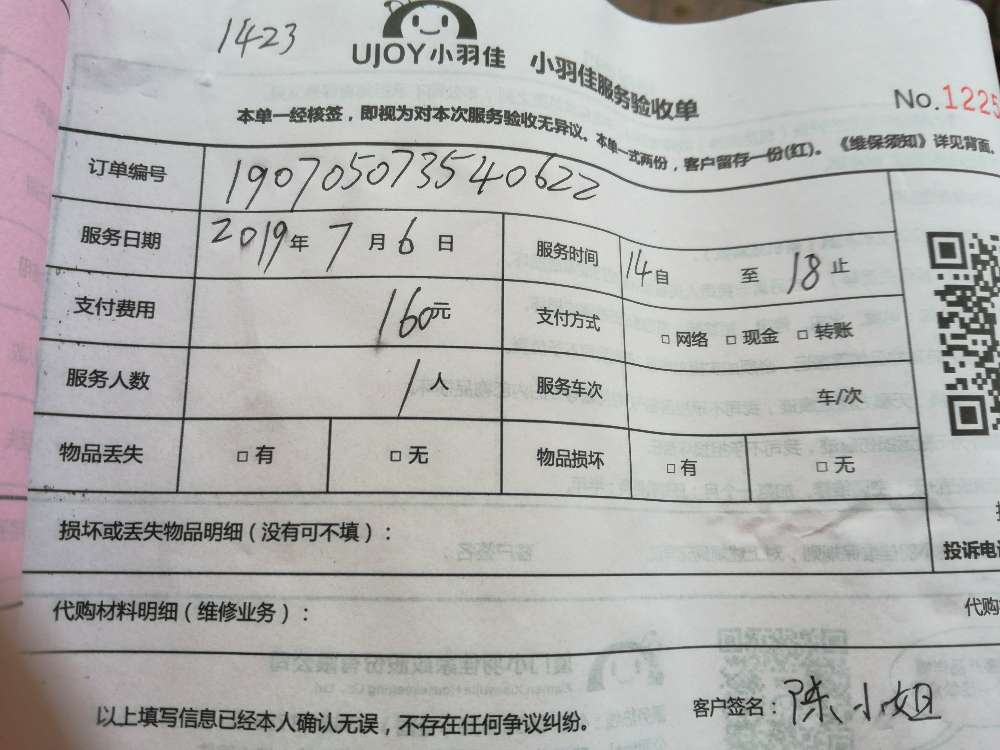 1423
UJOY小羽佳 小羽佳服务验收单
No.1225
本单一经核签，即视为对本次服务验收无异议。本单一式两份，客户留存一份(红)。《维保须知》详见背面。
订单编号 190705073540622
服务日期 2019年7月6日 服务时间 14自 至18止
支付费用 160元 支付方式 □网络 □现金 □转账
服务人数 1人 服务车次 车/次
物品丢失 □有 □无 物品损坏 □有 □无
损坏或丢失物品明细（没有可不填）：
投诉电
代购材料明细（维修业务）： 代购
以上填写信息已经本人确认无误，不存在任何争议纠纷。 客户签名：陈小姐